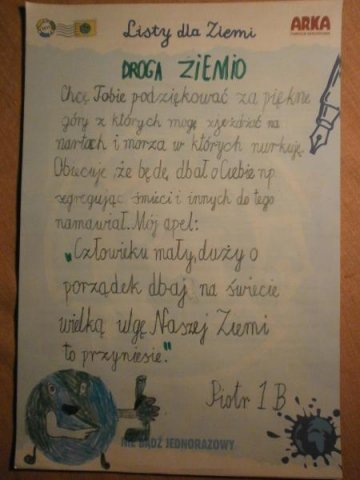 Listy dla Ziemi
ARKA
DROGA ZIEMIO
Chcę Tobie podziękować za piękne
góry z których mogę zjeżdżać na
nartach i morza w których nurkuję.
Obiecuję, że będę dbał o Ciebie np.
segregując śmieci i innych do tego
namawiał. Mój apel:
"Człowieku mały, duży o
porządek dbaj na świecie
wielką ulgę Naszej Ziemi
to przyniesie."
Piotr 1 B
NIE BĄDŹ JEDNORAZOWY